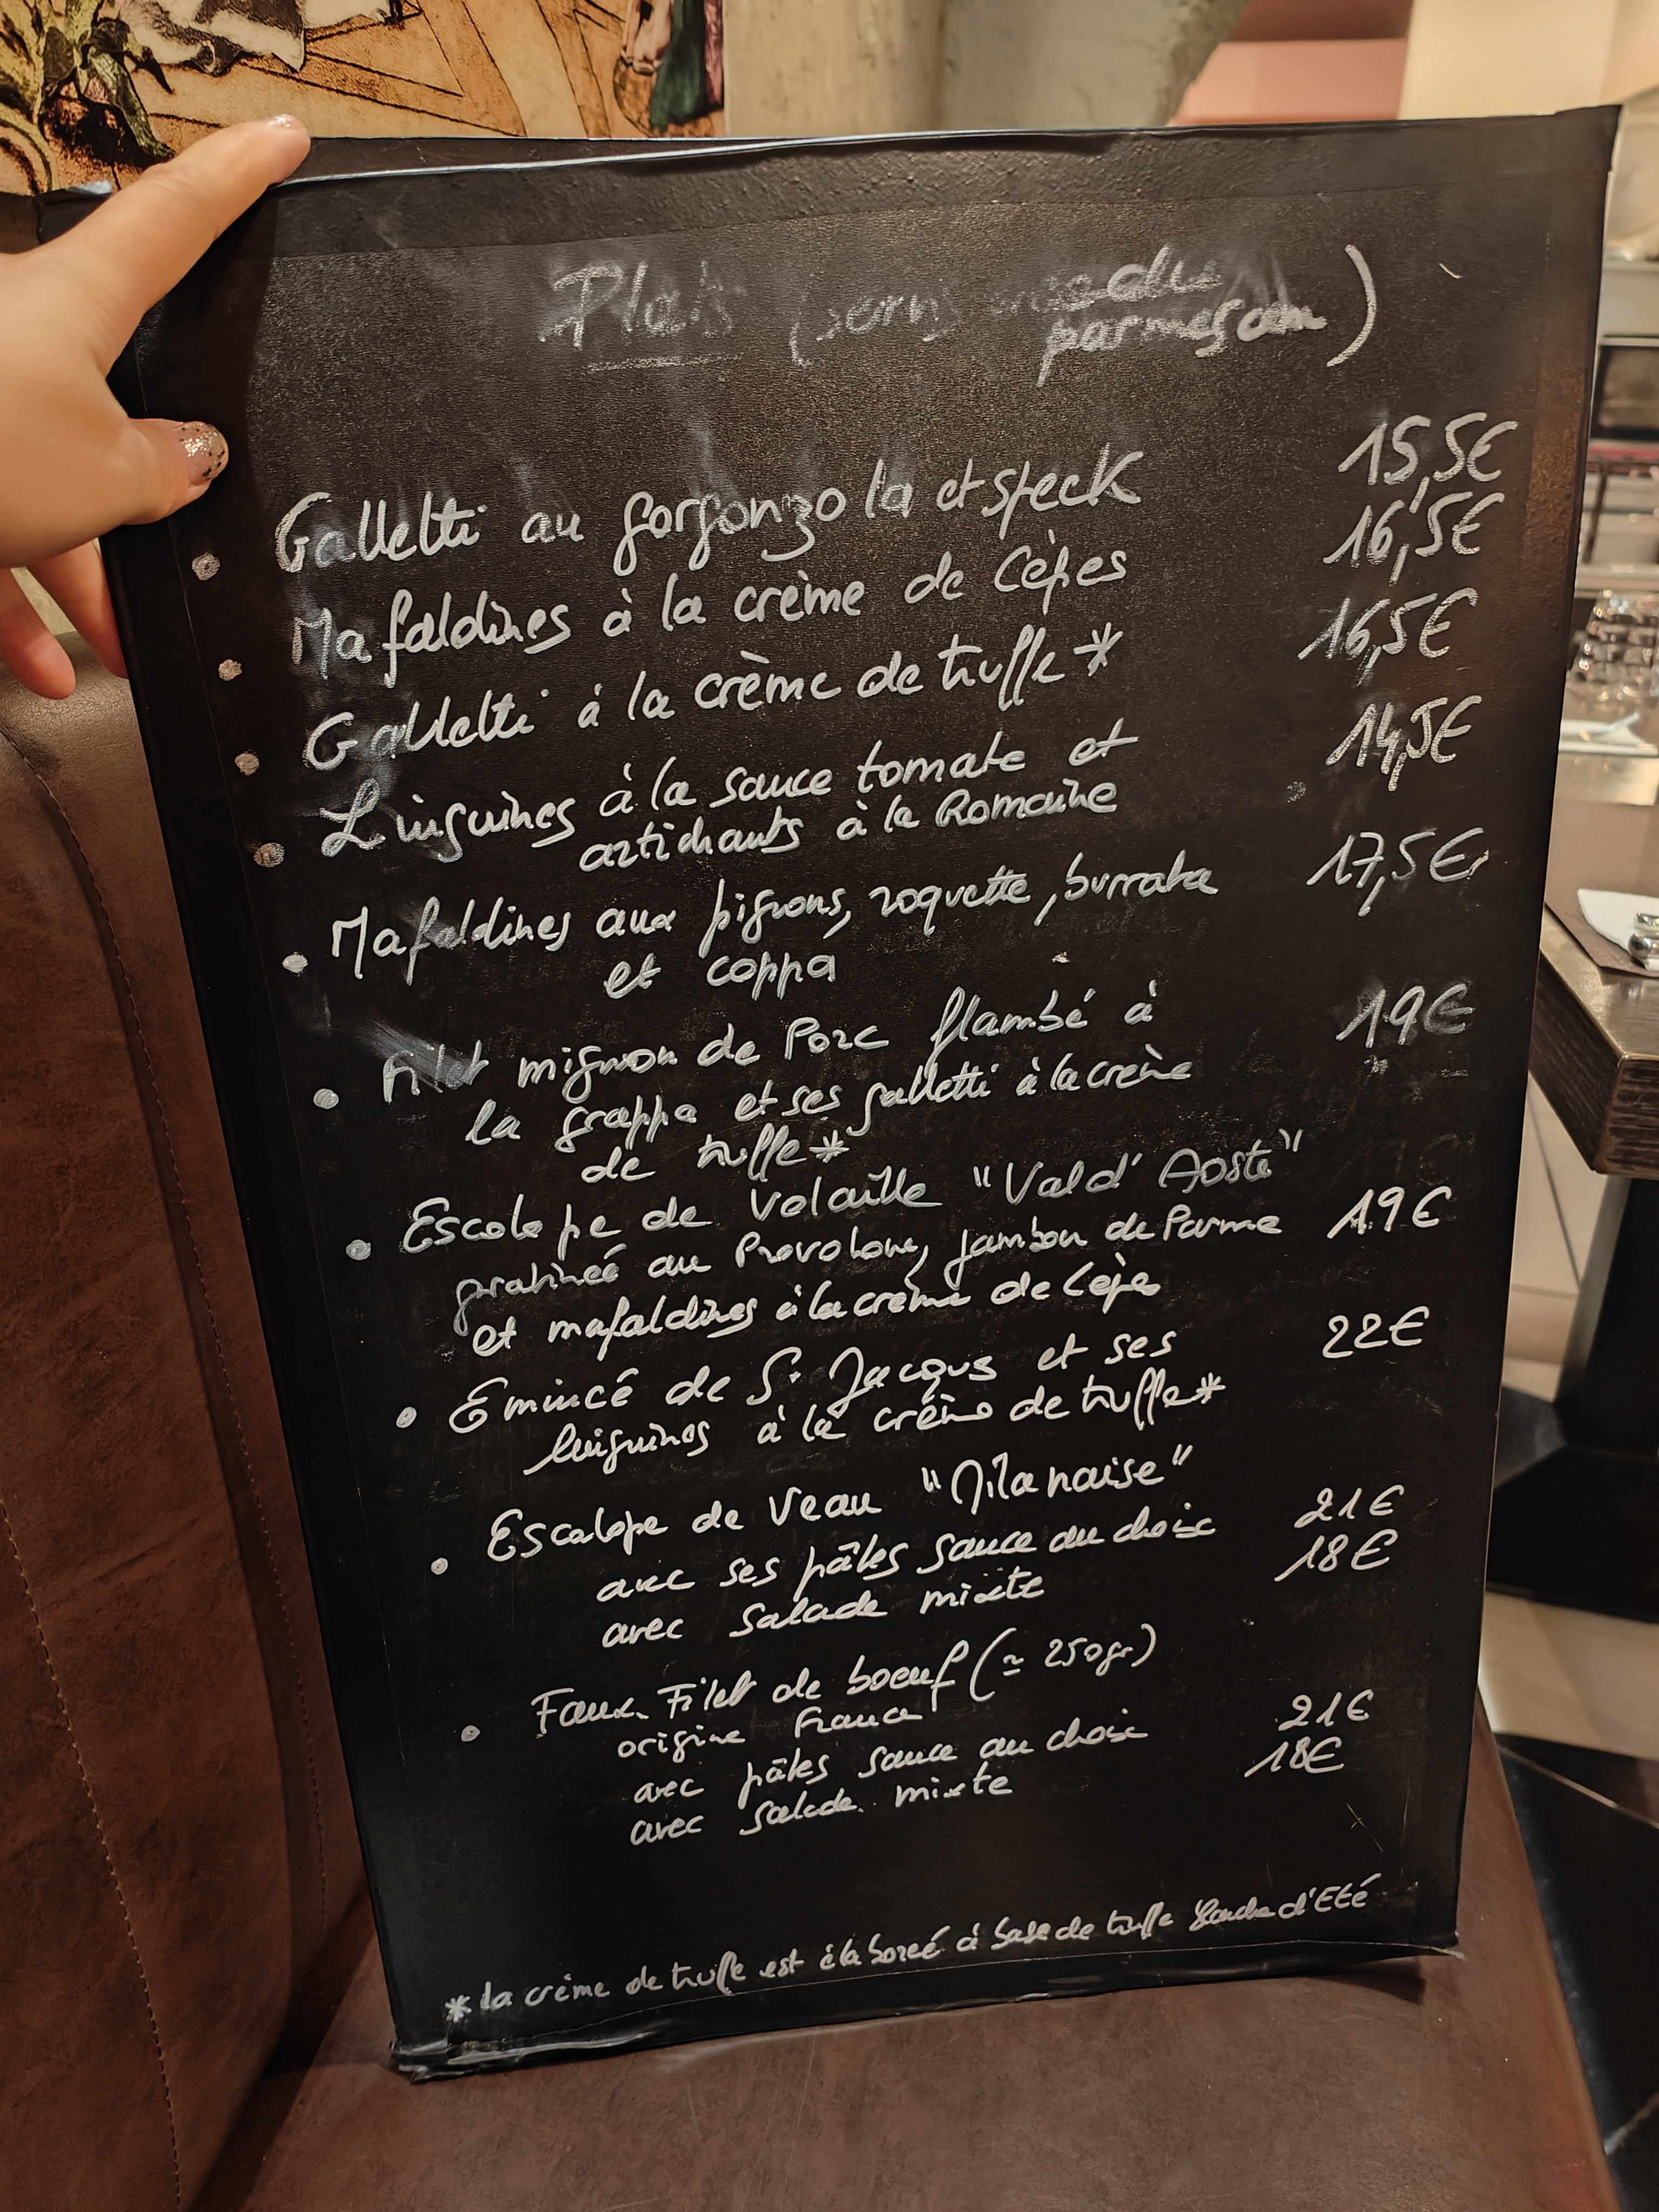 Plats (servis avec du
parmesan)
Galletti au gorgonzola et speck 15,5€
Mafaldines à la crème de Cèpes 16,5€
Galletti à la crème de truffe* 16,5€
Linguines à la sauce tomate et 14,5€
artichauts à la Romaine
Mafaldines aux pignons, roquette, burrata 17,5€
et coppa
Filet mignon de Porc flambé à 19€
la grappa et ses galletti à la crème
de truffe*
Escalope de Volaille "Val d'Aoste"
gratinée au Provolone, jambon de Parme 19€
et mafaldines à la crème de Cèpes
Emincé de St Jacques et ses 22€
linguines à la crème de truffe*
Escalope de Veau "Milanaise"
avec ses pâtes sauce au choix 21€
avec salade mixte 18€
Faux-Filet de boeuf (≃ 250gr)
origine France
avec pâtes sauce au choix 21€
avec salade mixte 18€
* la crème de truffe est élaborée à base de truffe blanche d'Eté